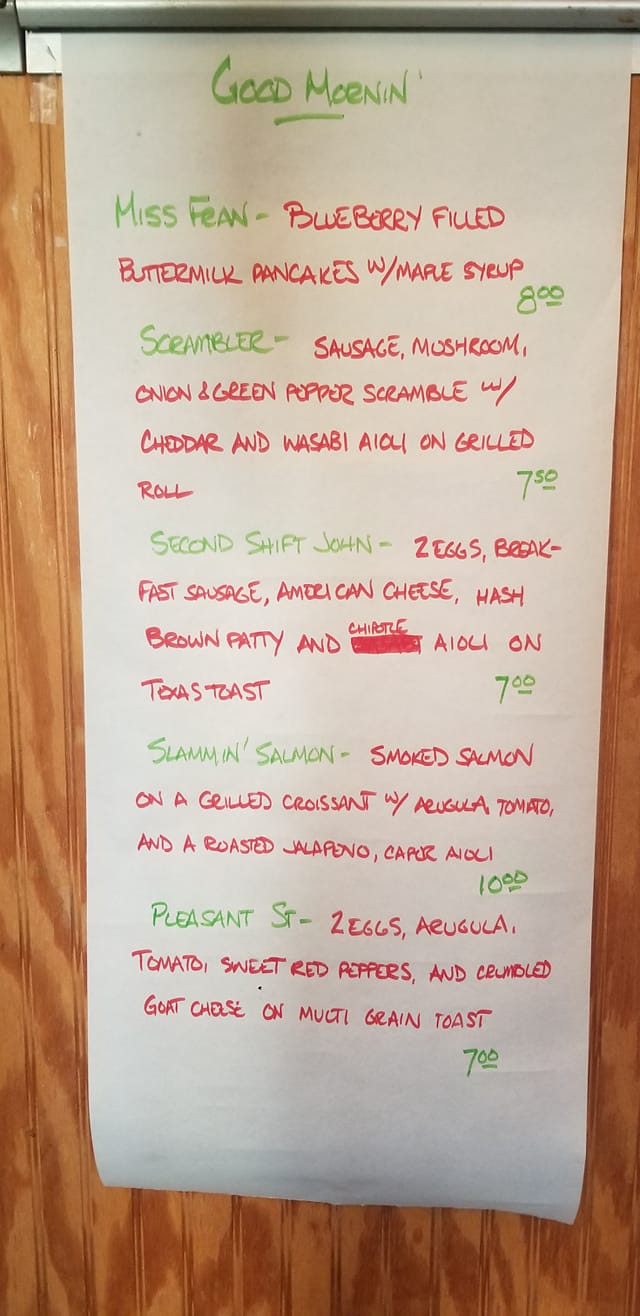 GOOD MORNIN'
MISS FRAN - BLUEBERRY FILLED
BUTTERMILK PANCAKES W/MAPLE SYRUP
8.00
SCRAMBLER - SAUSAGE, MUSHROOM,
ONION & GREEN PEPPER SCRAMBLE W/
CHEDDAR AND WASABI AIOLI ON GRILLED
ROLL 7.50
SECOND SHIFT JOHN - 2 EGGS, BREAK-
FAST SAUSAGE, AMERICAN CHEESE, HASH
BROWN PATTY AND CHIPOTLE AIOLI ON
TEXAS TOAST 7.00
SLAMMIN' SALMON - SMOKED SALMON
ON A GRILLED CROISSANT W/ ARUGULA, TOMATO,
AND A ROASTED JALAPENO, CAPER AIOLI
10.00
PLEASANT ST - 2 EGGS, ARUGULA,
TOMATO, SWEET RED PEPPERS, AND CRUMBLED
GOAT CHEESE ON MULTI GRAIN TOAST
7.00